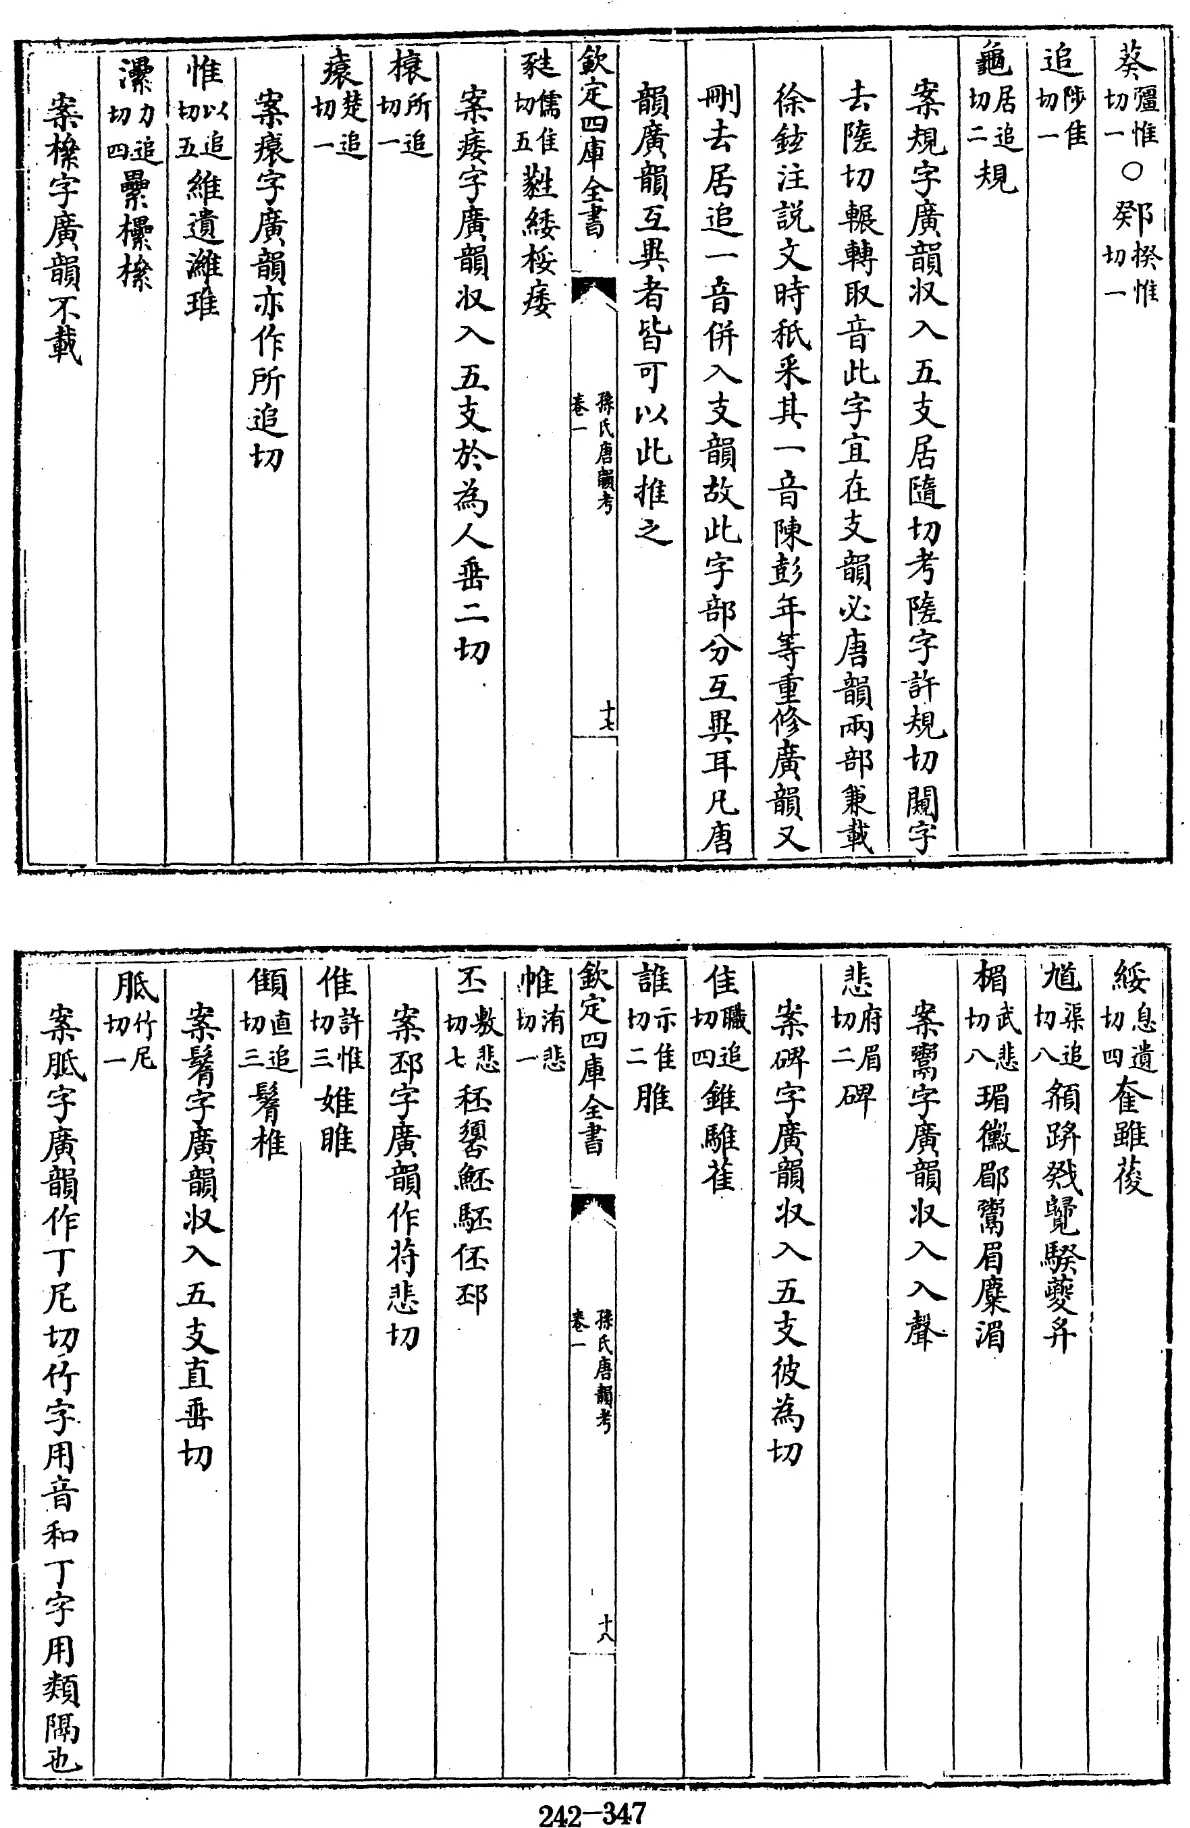 葵彊惟切一○鄈揆惟切一
追陟隹切一
龜居追切二規
案規字廣韻収入五支居隨切考隓字許規切闚字
去隓切輾轉取音此字宜在支韻必唐韻兩部兼載
徐鉉注説文時秖采其一音陳彭年等重修廣韻又
刪去居追一音併入支韻故此字部分互異耳凡唐
韻廣韻互異者皆可以此推之
欽定四庫全書
孫氏唐韻考
卷一
十七
甤儒隹切五㽔緌桵痿
案痿字廣韻収入五支於為人垂二切
榱所追切一
㾽楚追切一
案㾽字廣韻亦作所追切
惟以追切五維遺濰琟
瀿力追切四纍欙樏
案樏字廣韻不載
綏息遺切四奞雖荽
馗渠追切八頯跻戣䳫騤夔𢌳
楣武悲切八瑂黴郿鶥眉麋湄
案鶥字廣韻収入入聲
悲府眉切二碑
案碑字廣韻収入五支彼為切
隹職追切四錐騅萑
誰示隹切二脽
欽定四庫全書
孫氏唐韻考
卷一
十八
帷洧悲切一
丕敷悲切七秠嚭魾駓伾邳
案邳字廣韻作符悲切
倠許惟切三婎睢
顀直追切三鬌椎
案鬌字廣韻収入五支直垂切
胝竹尼切一
案胝字廣韻作丁尼切竹字用音和丁字用類隔也
242-347